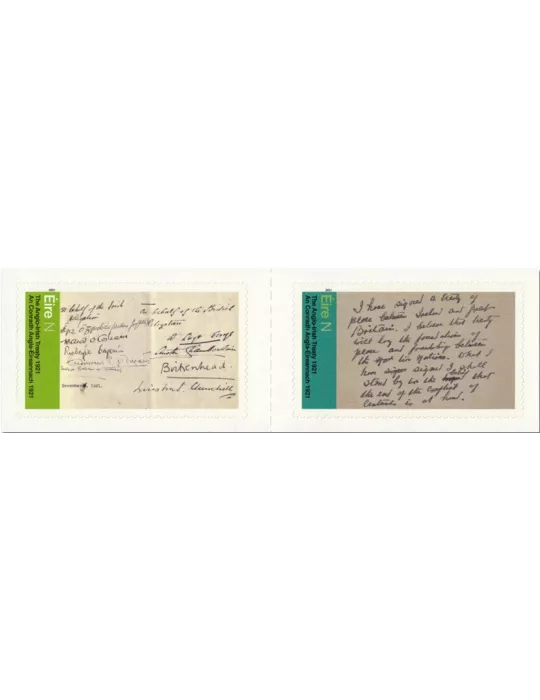 2021
Éire N
The Anglo-Irish Treaty 1921
An Conradh Angla-Éireannach 1921
On behalf of the Irish
Delegation
On behalf of the British
Delegation
D Lloyd George
Austen Chamberlain
Birkenhead
Winston S Churchill
December 6, 1921.
2021
Éire N
The Anglo-Irish Treaty 1921
An Conradh Angla-Éireannach 1921
I have signed a treaty of
peace between Ireland and Great
Britain. I believe that treaty
will lay the foundations of
peace and friendship between
the two Nations. What I
have signed I shall
stand by in the belief that
the end of the conflict of
centuries is at hand.